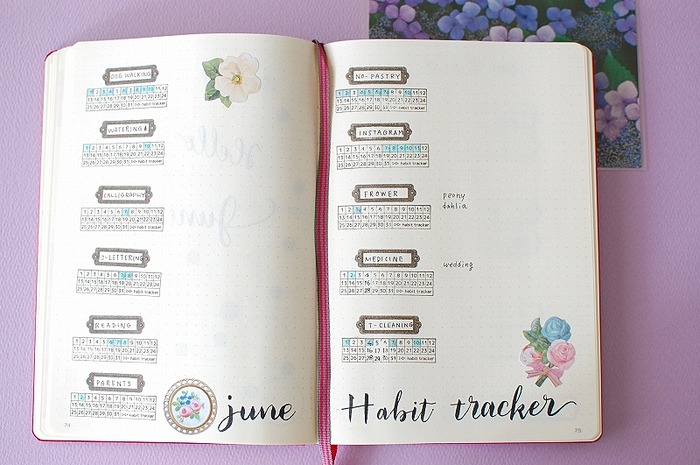 DOG WALKING
1 2 3 4 5 6 7 8 9 10 11 12
13 14 15 16 17 18 19 20 21 22 23 24
25 26 27 28 29 30 31 ▷▷ habit tracker
WATERING
1 2 3 4 5 6 7 8 9 10 11 12
13 14 15 16 17 18 19 20 21 22 23 24
25 26 27 28 29 30 31 ▷▷ habit tracker
CALLIGRAPHY
1 2 3 4 5 6 7 8 9 10 11 12
13 14 15 16 17 18 19 20 21 22 23 24
25 26 27 28 29 30 31 ▷▷ habit tracker
J-LETTERING
1 2 3 4 5 6 7 8 9 10 11 12
13 14 15 16 17 18 19 20 21 22 23 24
25 26 27 28 29 30 31 ▷▷ habit tracker
READING
1 2 3 4 5 6 7 8 9 10 11 12
13 14 15 16 17 18 19 20 21 22 23 24
25 26 27 28 29 30 31 ▷▷ habit tracker
PARENTS
1 2 3 4 5 6 7 8 9 10 11 12
13 14 15 16 17 18 19 20 21 22 23 24
25 26 27 28 29 30 31 ▷▷ habit tracker
june
74
NO-PASTRY
1 2 3 4 5 6 7 8 9 10 11 12
13 14 15 16 17 18 19 20 21 22 23 24
25 26 27 28 29 30 31 ▷▷ habit tracker
INSTAGRAM
1 2 3 4 5 6 7 8 9 10 11 12
13 14 15 16 17 18 19 20 21 22 23 24
25 26 27 28 29 30 31 ▷▷ habit tracker
FROWER
1 2 3 4 5 6 7 8 9 10 11 12
13 14 15 16 17 18 19 20 21 22 23 24
25 26 27 28 29 30 31 ▷▷ habit tracker
peony
dahlia
MEDICINE
1 2 3 4 5 6 7 8 9 10 11 12
13 14 15 16 17 18 19 20 21 22 23 24
25 26 27 28 29 30 31 ▷▷ habit tracker
wedding
T-CLEANING
1 2 3 4 5 6 7 8 9 10 11 12
13 14 15 16 17 18 19 20 21 22 23 24
25 26 27 28 29 30 31 ▷▷ habit tracker
Habit tracker
75